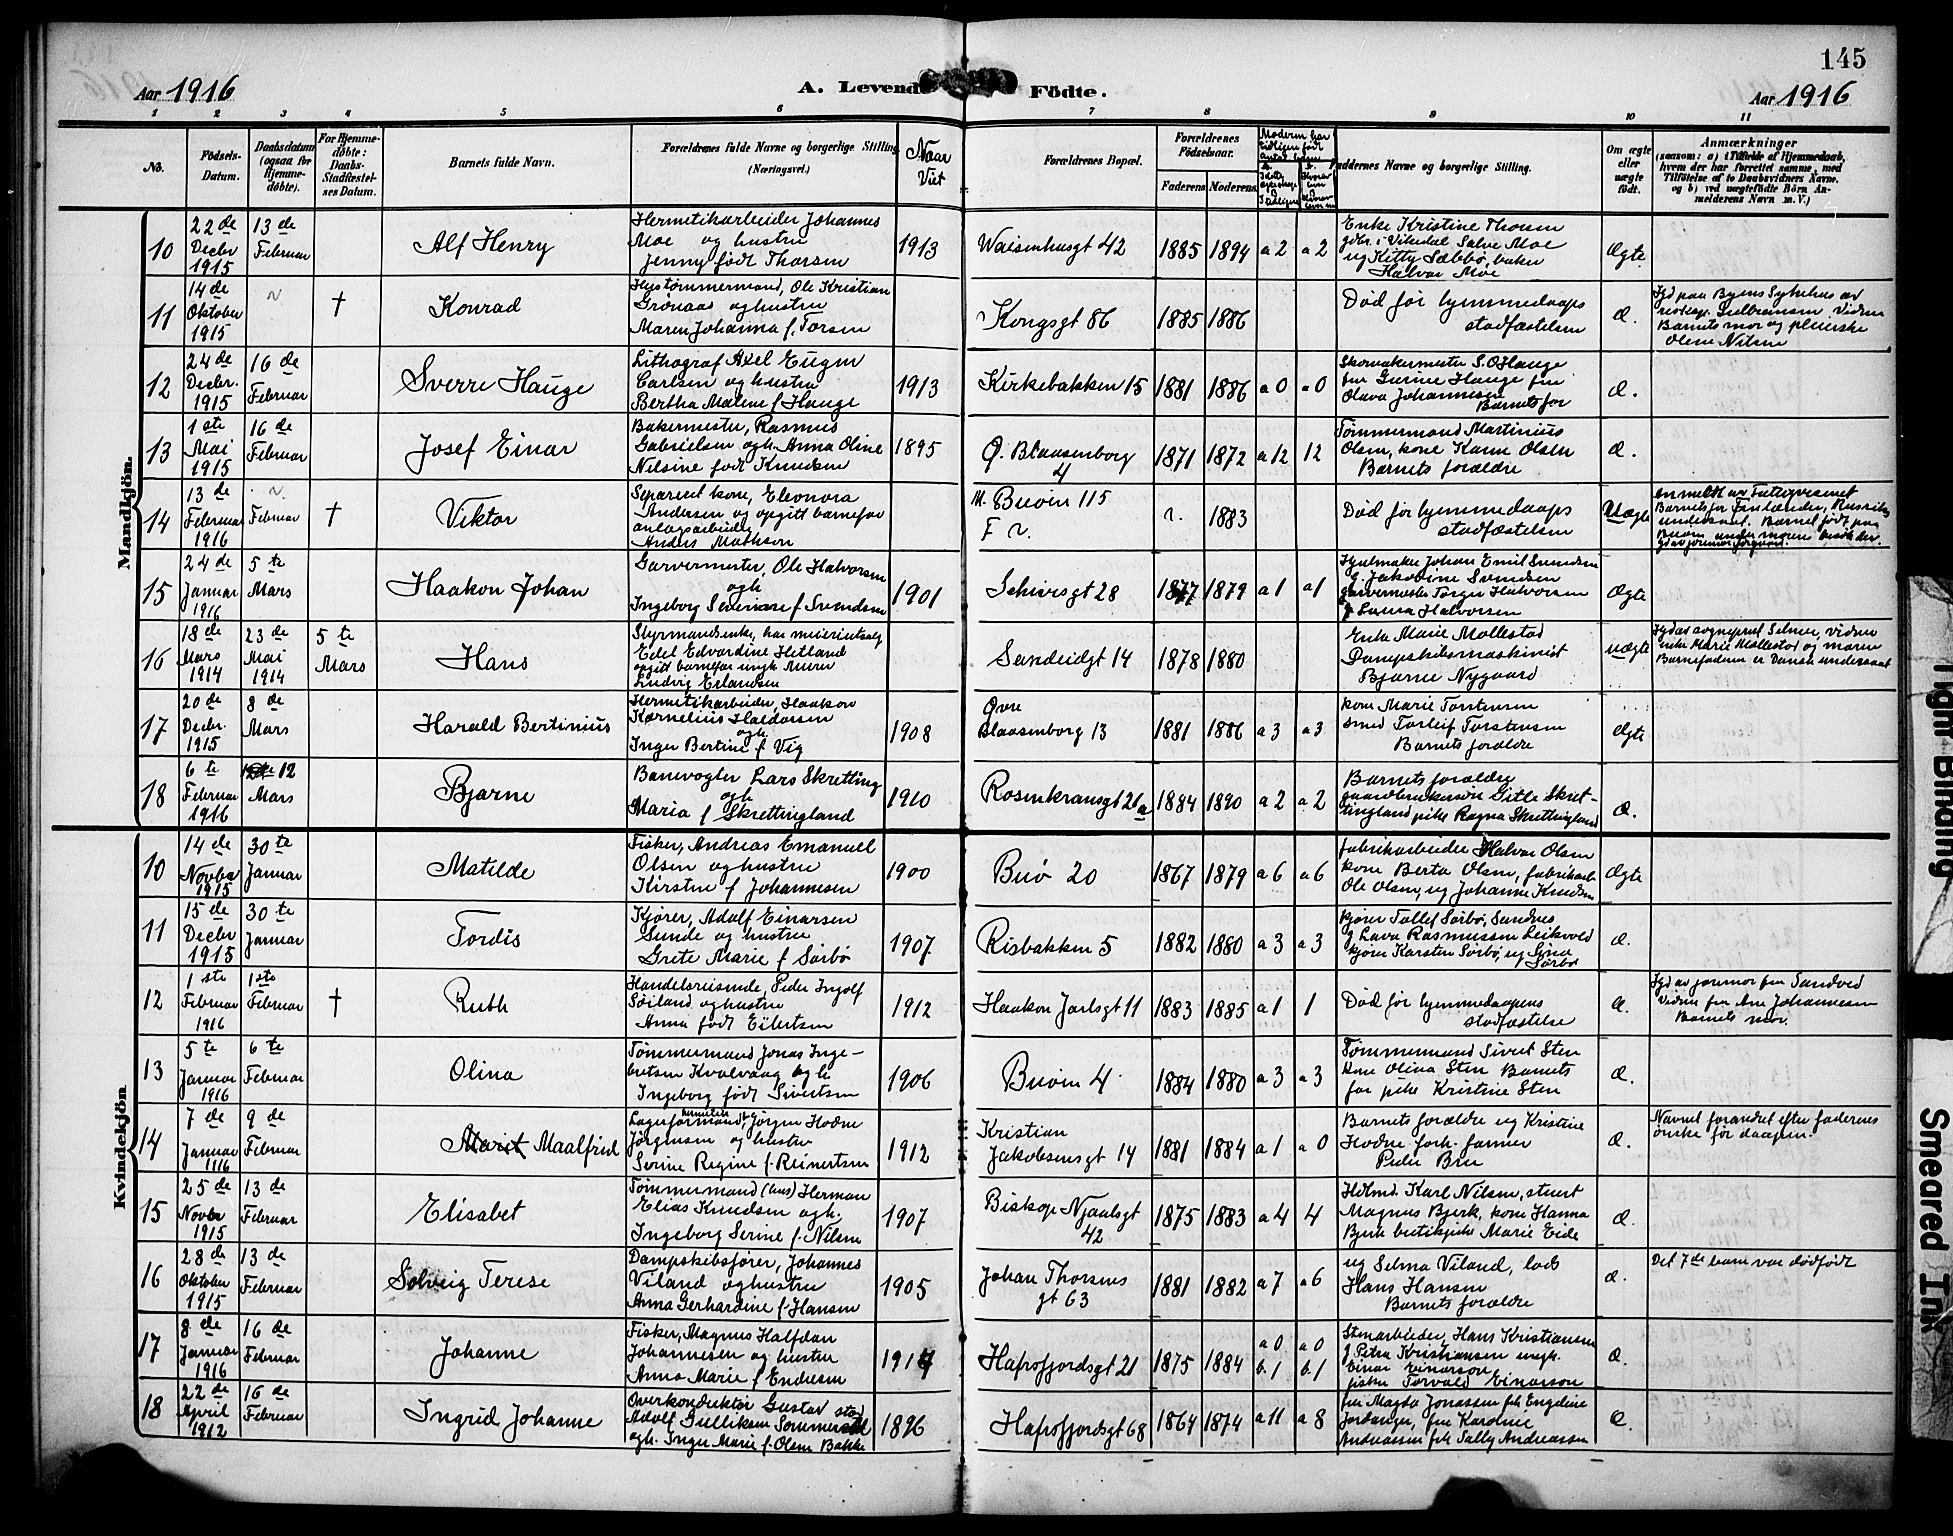 145
Aar 1916
A. Levende Födte.
Aar 1916
1 2 3 4 5 6 7 8 9 10 11
No.
Födsels-
Datum.
Daabsdatum
(ogsaa for
Hjemme-
döbte).
For Hjemme-
döbte:
Daabs-
Stadfæstel-
ses Datum.
Barnets fulde Navn.
Forældrenes fulde Navne og borgerlige Stilling
(Næringsvei.)
Naar
Viet
Forældrenes Bopæl.
Forældrenes
Födselsaar.
Faderens Moderens
Moderen har
tidligere født
Faddernes Navne og borgerlige Stilling.
Om ægte
eller
uægte
födt.
Anmærkninger
(saasom: a) i Tilfælde af Hjemmedaab,
hvem der har forrettet samme, med
Tilföielse af to Daabsvidners Navne,
og b) ved uægtefödte Börn An-
melderens Navn m. V.)
Mandkjön.
10
22 de
Decbr
1915
13 de
Februar
Alf Henry
Hermetikarbeider Johannes
Moe og hustru
Jenny født Thorsen
1913
Waisenhusgt 42
1885 1894 a 2 a 2
Enke Kristine Thorsen
gdbr. i Vikedal Salve Moe
ug Kitty Sæbbø, baker
Halvar Moe
Ægte
11
14 de
Oktober
1915
~
†
Konrad
Hustømmermand, Ole Kristian
Grønaas og hustru
Maren Johanna f. Torsen
Kongsgt 86
1885 1886
Død før hjemmedaaps
stadfæstelsen
Æ.
Barnets mor og pleierske
Olene Nilsen
12
24 de
Decbr.
1915
16 de
Februar
Sverre Hauge
Lithograf Axel Eugen
Carlsen og hustru
Bertha Malene f Hauge
1913
Kirkebakken 15
1881 1886 a 0 a 0
Skomakermester S. O. Hauge
fru Gurine Hauge fru
Olava Johannesen
Barnets far
Æ.
13
1 ste
Mai
1915
16 de
Februar
Josef Einar
Bakermester, Rasmus
Gabrielsen og h. Anna Oline
Nilsine født Knudsen
1895
Ø. Blaasenborg
4
1871 1872 a 12 12
Tømmermand Martinius
Olsen, kone Karen Olsen
Barnets forældre
Æ.
14
13 de
Februar
1916
~
Februar
†
Viktor
Separeret kone, Eleonora
Andersen og opgitt barnefar
anlægsarbeider
Anders Mathson
M. Buøen 115
F ~.
~. 1883
Død før hjemmedaaps
stadfæstelsen
Uægte
Anmeldt av Fattigvæsenet
Barnets far Finlænder, Russisk
undersaat. Barnet født paa
15
24 de
Januar
1916
5 te
Mars
Haakon Johan
Garvermester, Ole Halvorsen
og h
Ingeborg Severine f Svendsen
1901
Schivesgt 28
1877 1879 a 1 a 1
Hjulmaker Johan Emil Svendsen
g Jakobine Svendsen
garvermester Torger Halvorsen
g Laura Halvorsen
Ægte
16
18 de
Mars
1914
23 de
Mai
1914
5 te
Mars
Hans
Styrmandsenke, har meieriutsalg
Edel Edvardine Hetland
opgitt barnefar ungk. Murer
Ludvig Erlandsen
Sandeidgt 14
1878 1880
Enke Marie Mollestad
Dampskibsmaskinist
Bjarne Nygaard
uægte
Hjd av sogneprest Selmer, vidner
enke Marie Mollestad og moren
Barnefaderen er Dansk undersaat
17
20 de
Decbr.
1915
8 de
Mars
Harald Bertinius
Hermetikarbeider, Haakon
Kornelius Haldorsen
og h
Inger Bertine f Vig
1908
Øvre
Blaasenborg 13
1881 1886 a 3 a 3
kone Marie Torstensen
smed Torleif Torstensen
Barnets forældre
Ægte
18
6 te
Februar
1916
12
Mars
Bjarne
Banevogter Lars Skretting
og h
Maria f Skrettingland
1910
Rosenkransgt 21 a
1884 1890 a 2 a 2
Barnets forældre
gaardbrukersøn Gitle Skret-
tingland pike Ragna Skrettingland
Æ.
Kvindekjön
10
14 de
Novbr
1915
30 te
Januar
Matilde
Fisker, Andreas Emanuel
Olsen og hustru
Kirsten f Johannesen
1900
Buø 20
1867 1879 a 6 a 6
fabrikarbeider Halvar Olsen
kone Berta Olsen, fabrikarb
Ole Olsen, ug Johanne Knudsen
Ægte
11
15 de
Decbr
1915
30 te
Januar
Tordis
Kjører, Adolf Einarsen
Sunde og hustru
Grete Marie f Sørbø
1907
Risbakken 5
1882 1880 a 3 a 3
kjører Tollef Sørbø, Sandnes
g Lava Rasmussen Leikvold
kjører Karsten Sørbø, ug Signa
Sørbø
Æ.
12
1 ste
Februar
1916
1 ste
Februar
†
Ruth
Handelsreisende, Peder Ingolf
Søiland og hustru
Anna født Eilertsen
1912
Haakon Jarlsgt 11
1883 1885 a 1 1
Død før hjemmedaapens
stadfæstelse
Æ.
Hjd av jormor fru Sandved
Vidner fru Ane Johannesen
Barnets mor.
13
5 te
Januar
1916
6 te
Februar
Olina
Tømmermand Jonas Inge-
bretsen Kvalvaag og h.
Ingeborg født Sivertsen
1906
Buøen 4
1884 1880 a 3 a 3
Tømmermand Sivert Sten
kone Olina Sten Barnets
far pike Kristine Sten
Æ.
14
7 de
Januar
1916
9 de
Februar
Marit Maalfrid
Lagerformand, Jørgen Hodne
Jørgensen og hustru
Serine Regine f. Reinertsen
1912
Kristian
Jakobsensgt 14
1881 1884 a 1 a 0
Barnets forældre ug Kristine
Hodne forh. farmer
Peder Bru
Æ.
Navnet forandret efter faderens
ønske før daapen.
15
25 de
Novbr
1915
13 de
Februar
Elisabet
Tømmermand (hus) Herman
Elias Knudsen og h.
Ingeborg Serine f. Nilsen
1907
Biskop Njaalsgt
42
1875 1883 a 4 4
Holmd. Karl Nilsen, stuert
Magnus Bjerk, kone Hanna
Bjerk butikpike Marie Eide
Æ.
16
28 de
Oktober
1915
13 de
Februar
Solveig Terese
Dampskibsfører, Johannes
Viland og hustru
Anna Gerhardine f. Hansen
1905
Johan Thorsens
gt 63
1881 1882 a 7 a 6
ug Selma Viland, lods
Hans Hansen
Barnets forældre
Æ.
Det 7de barn var dødfødt
17
8 de
Januar
1916
16 de
Februar
Johanne
Fisker, Magnus Halfdan
Johannesen og hustru
Anna Marie f Endresen
1914
Hafrsfjordsgt 21
1875 1884 a 0 a 0
b. 1 b. 1
Stenarbeider, Hans Kristiansen
g Petra Kristiansen ungk.
Einar Einarson
fisker Torvald Einarson
Æ.
18
22 de
April
1912
16 de
Februar
Ingrid Johanne
Overkonduktør Gustav
Adolf Gulliksen Sommerstad
og h. Inger Marie f. Olsen Bakke
1896
Hafrsfjordsgt 68
1864 1874 a 11 a 8
fru Magda Jonassen frk Engeline
Jordanger, fru Karoline
Andreassen frk Sally Andreassen
Æ.
Tight Binding
Smeared Ink